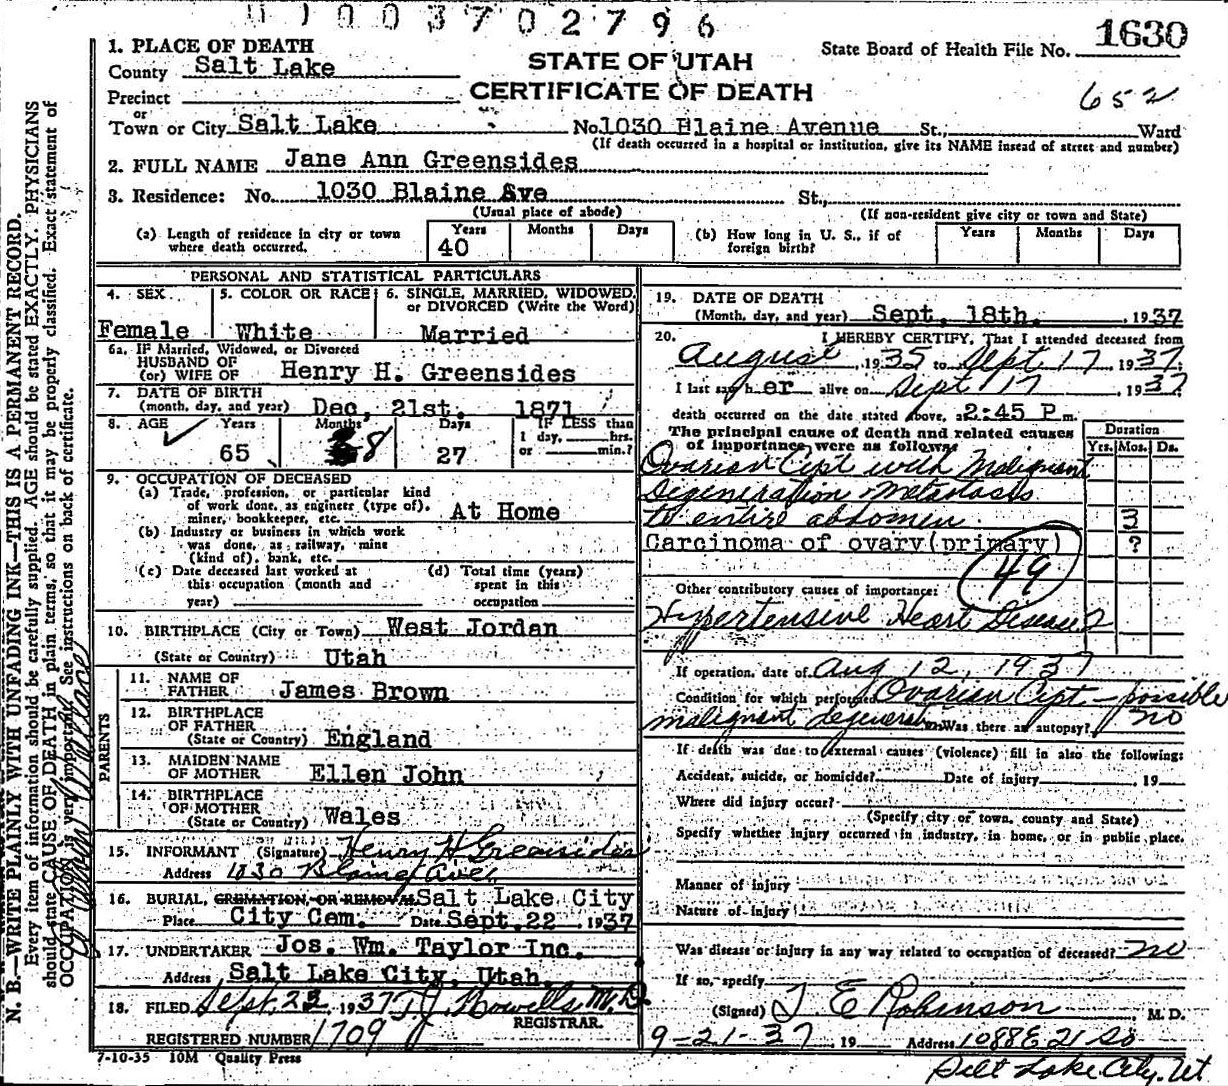 0 1 0 0 3 7 0 2 7 9 6
1630
State Board of Health File No.
STATE OF UTAH
CERTIFICATE OF DEATH
652
1. PLACE OF DEATH
County Salt Lake
Precinct
or
Town or City Salt Lake No. 1030 Blaine Avenue St., Ward
(If death occurred in a hospital or institution, give its NAME insead of street and number)
2. FULL NAME Jane Ann Greensides
3. Residence: No. 1030 Blaine Ave St.,
(Usual place of abode) (If non-resident give city or town and State)
(a) Length of residence in city or town where death occurred. Years 40 Months Days
(b) How long in U. S., if of foreign birth? Years Months Days
PERSONAL AND STATISTICAL PARTICULARS
4. SEX 5. COLOR OR RACE 6. SINGLE, MARRIED, WIDOWED, or DIVORCED (Write the Word)
Female White Married
6a. IF Married, Widowed, or Divorced
HUSBAND OF
(or) WIFE OF Henry H. Greensides
7. DATE OF BIRTH
(month, day, and year) Dec, 21st. 1871
8. AGE Years Months Days IF LESS than
1 day, hrs.
65 8 27 or min.?
9. OCCUPATION OF DECEASED
(a) Trade, profession, or particular kind
of work done, as engineer (type of),
miner, bookkeeper, etc. At Home
(b) Industry or business in which work
was done, as railway, mine
(kind of), bank, etc.
(c) Date deceased last worked at (d) Total time (years)
this occupation (month and spent in this
year) occupation
10. BIRTHPLACE (City or Town) West Jordan
(State or Country) Utah
PARENTS
11. NAME OF
FATHER James Brown
12. BIRTHPLACE
OF FATHER
(State or Country) England
13. MAIDEN NAME
OF MOTHER Ellen John
14. BIRTHPLACE
OF MOTHER
(State or Country) Wales
15. INFORMANT (Signature) Henry H Greensides
Address 1030 Blaine Ave
16. BURIAL, CREMATION, OR REMOVAL Salt Lake City
Place City Cem. Date Sept. 22, 1937
17. UNDERTAKER Jos. Wm. Taylor Inc.
Address Salt Lake City, Utah.
18. FILED Sept. 23, 1937 T J Howells M.D.
REGISTRAR.
REGISTERED NUMBER 1709
7-10-35 10M Quality Press
19. DATE OF DEATH
(Month, day, and year) Sept. 18th. , 1937
20. I HEREBY CERTIFY, That I attended deceased from
August , 1935 to Sept 17 , 1937.
I last saw her alive on Sept 17 , 1937
death occurred on the date stated above, at 2:45 P m.
The principal cause of death and related causes
of importance were as follows: Duration
Yrs. Mos. Ds.
Ovarian Cyst with Malignant
Degeneration + Metastasis
to entire abdomen 3
Carcinoma of ovary (primary) ?
49
Other contributory causes of importance:
Hypertensive Heart Disease 2
If operation, date of Aug 12, 1937
Condition for which performed Ovarian Cyst - possible
malignant degeneration Was there an autopsy? no
If death was due to external causes (violence) fill in also the following:
Accident, suicide, or homicide? Date of injury , 19
Where did injury occur?
(Specify city or town, county and State)
Specify whether injury occurred in industry, in home, or in public place.
Manner of injury
Nature of injury
Was disease or injury in any way related to occupation of deceased? no
If so, specify
(Signed) T E Robinson M. D.
9-21-37 , 19 Address 1088 E 21 So
Salt Lake City, Ut
N. B.—WRITE PLAINLY WITH UNFADING INK—THIS IS A PERMANENT RECORD.
Every item of information should be carefully supplied. AGE should be stated EXACTLY. PHYSICIANS
should state CAUSE OF DEATH in plain terms, so that it may be properly classified. Exact statement of
OCCUPATION is very important. See instructions on back of certificate.